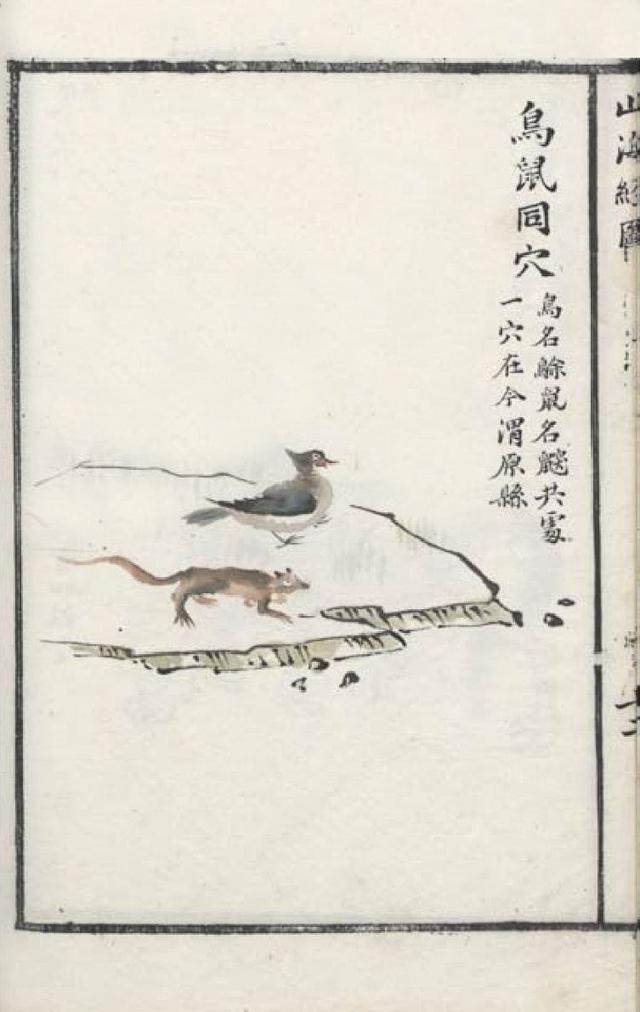 山海經圖
鳥鼠同穴
鳥名䳜鼠名鼵共處
一穴在今渭原縣
十二